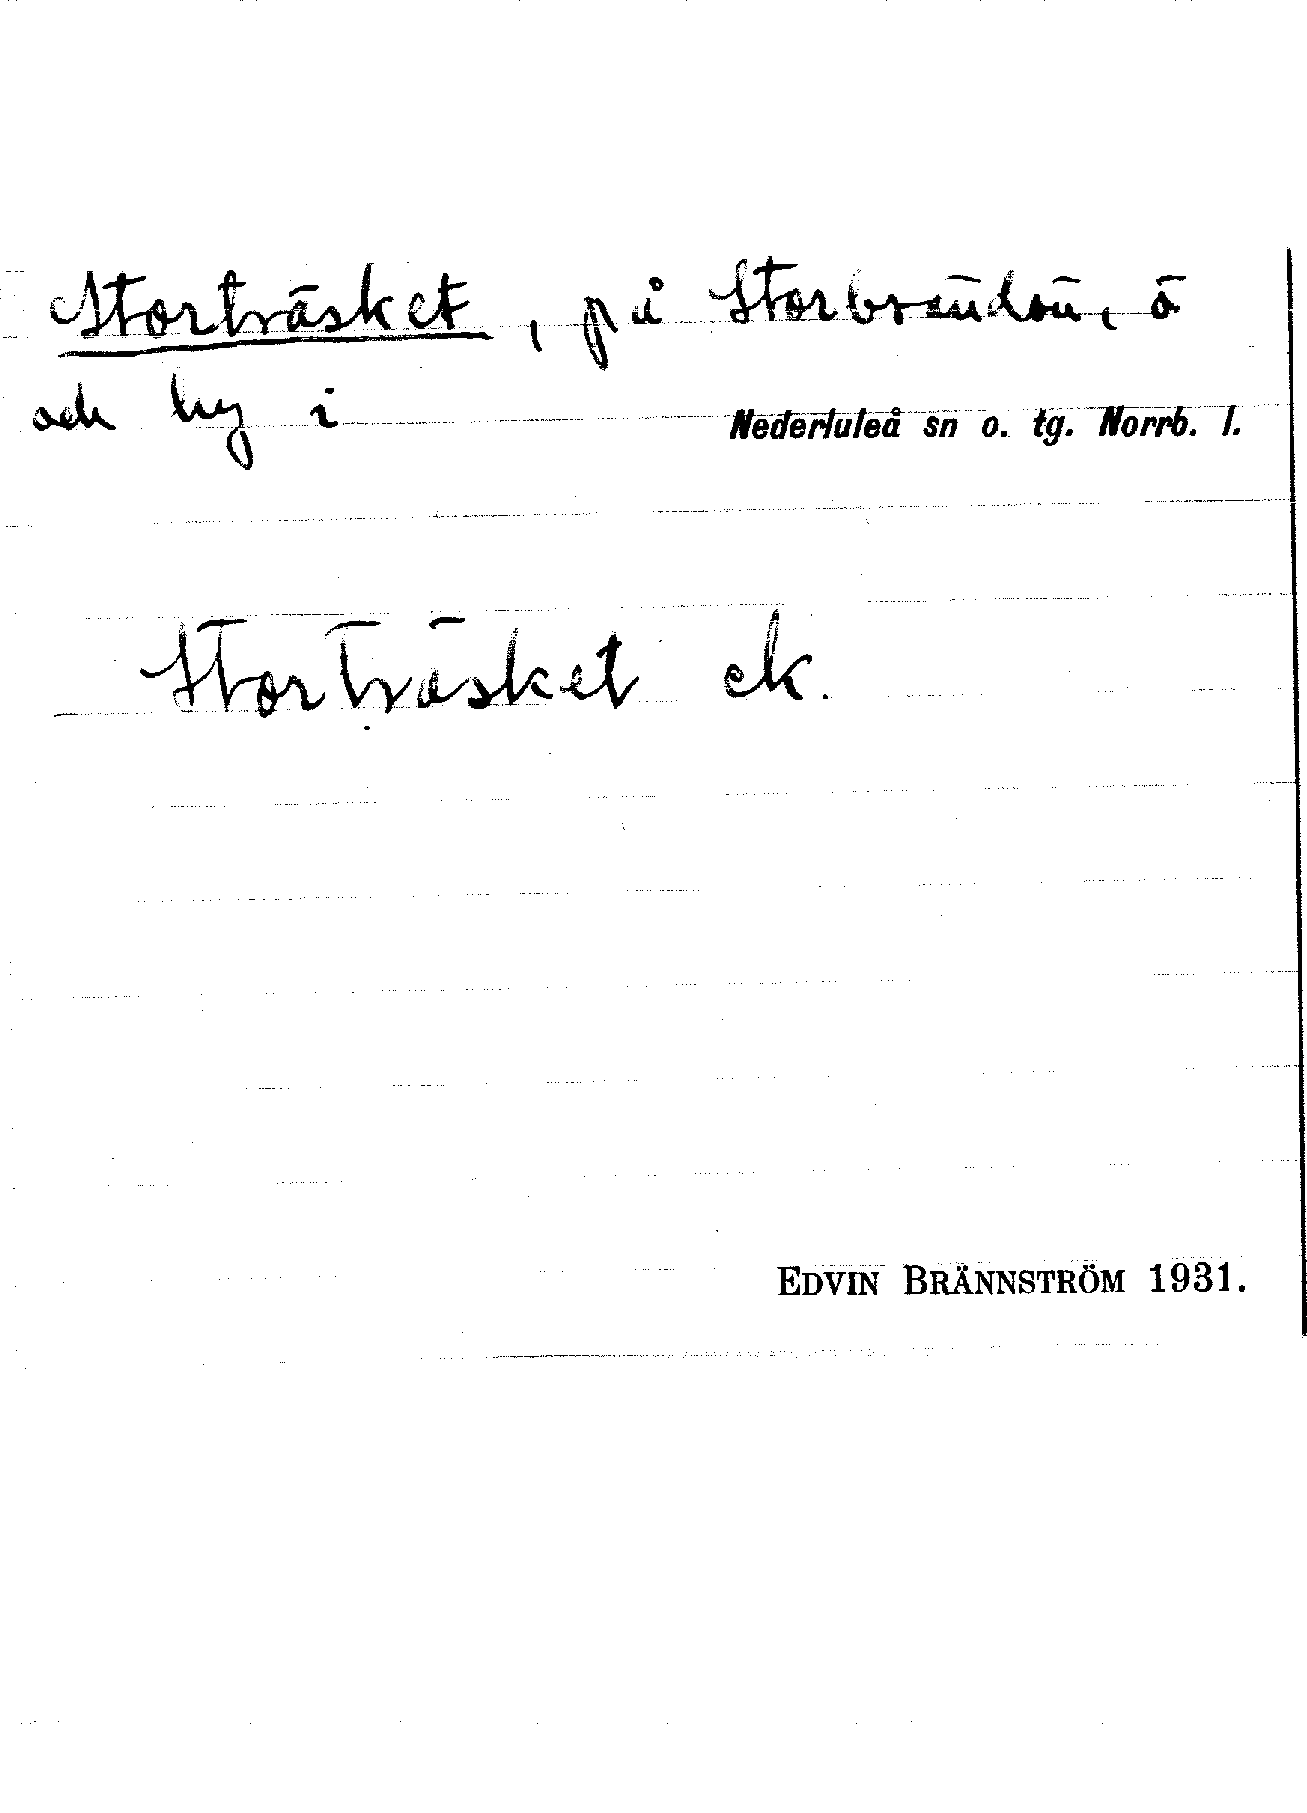 Storträsket, på Storbrändön, ö
och by i Nederluleå sn o. tg. Norrb. l.
Storträsket ek.
EDVIN BRÄNNSTRÖM 1931.